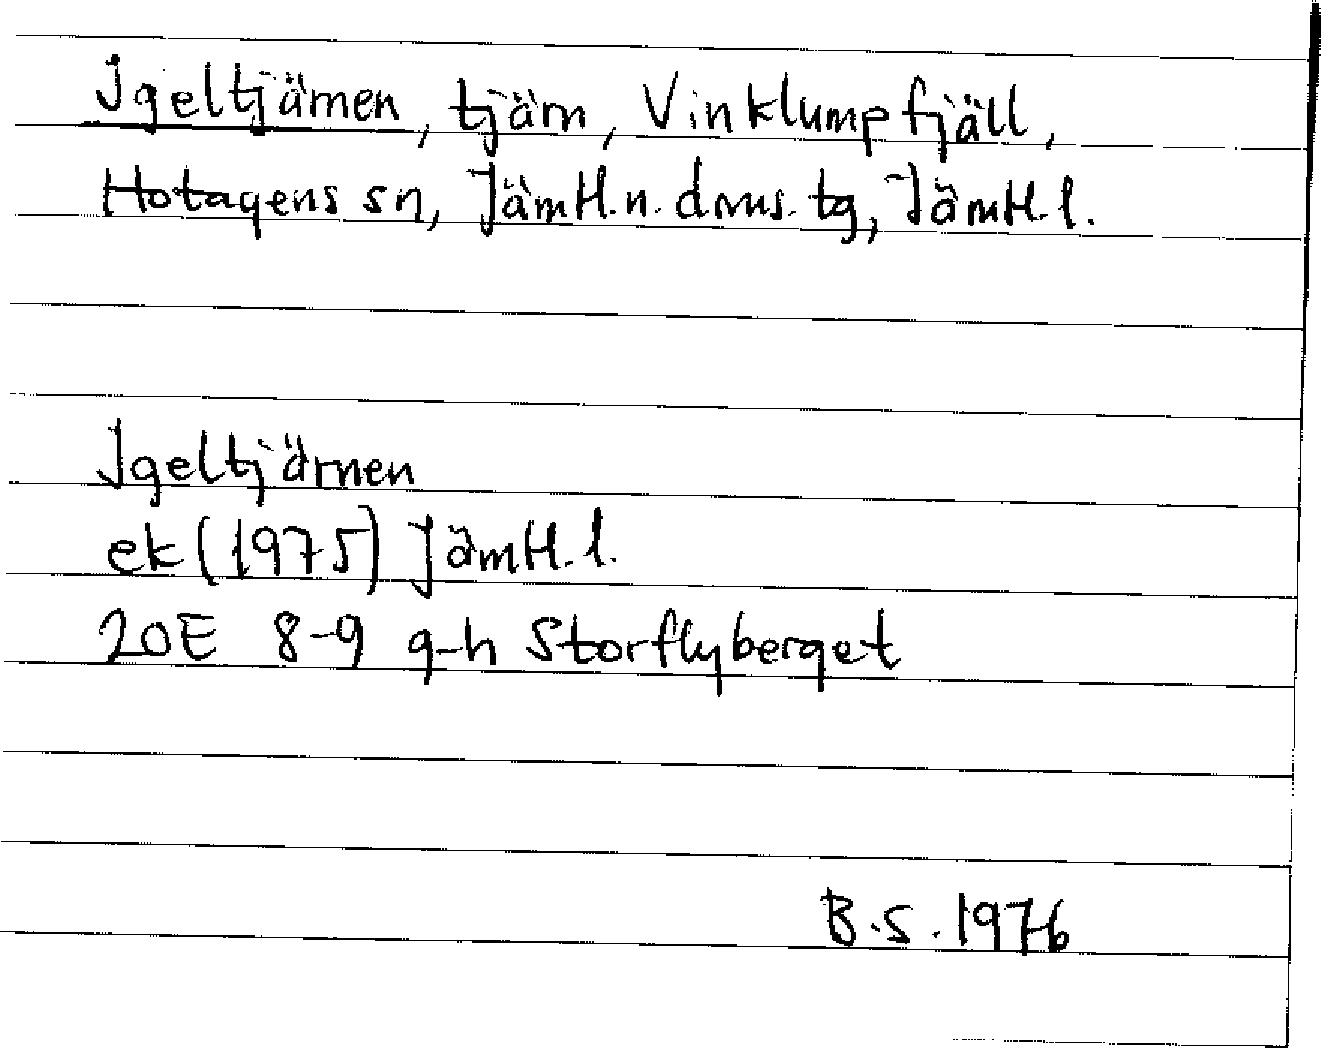 Igeltjärnen, tjärn, Vinklumpfjäll,
Hotagens sn, Jämtl. n. doms. tg, Jämtl. l.
Igeltjärnen
ek (1975) Jämtl. l.
20E 8-9 g-h Storflyberget
B.S. 1976